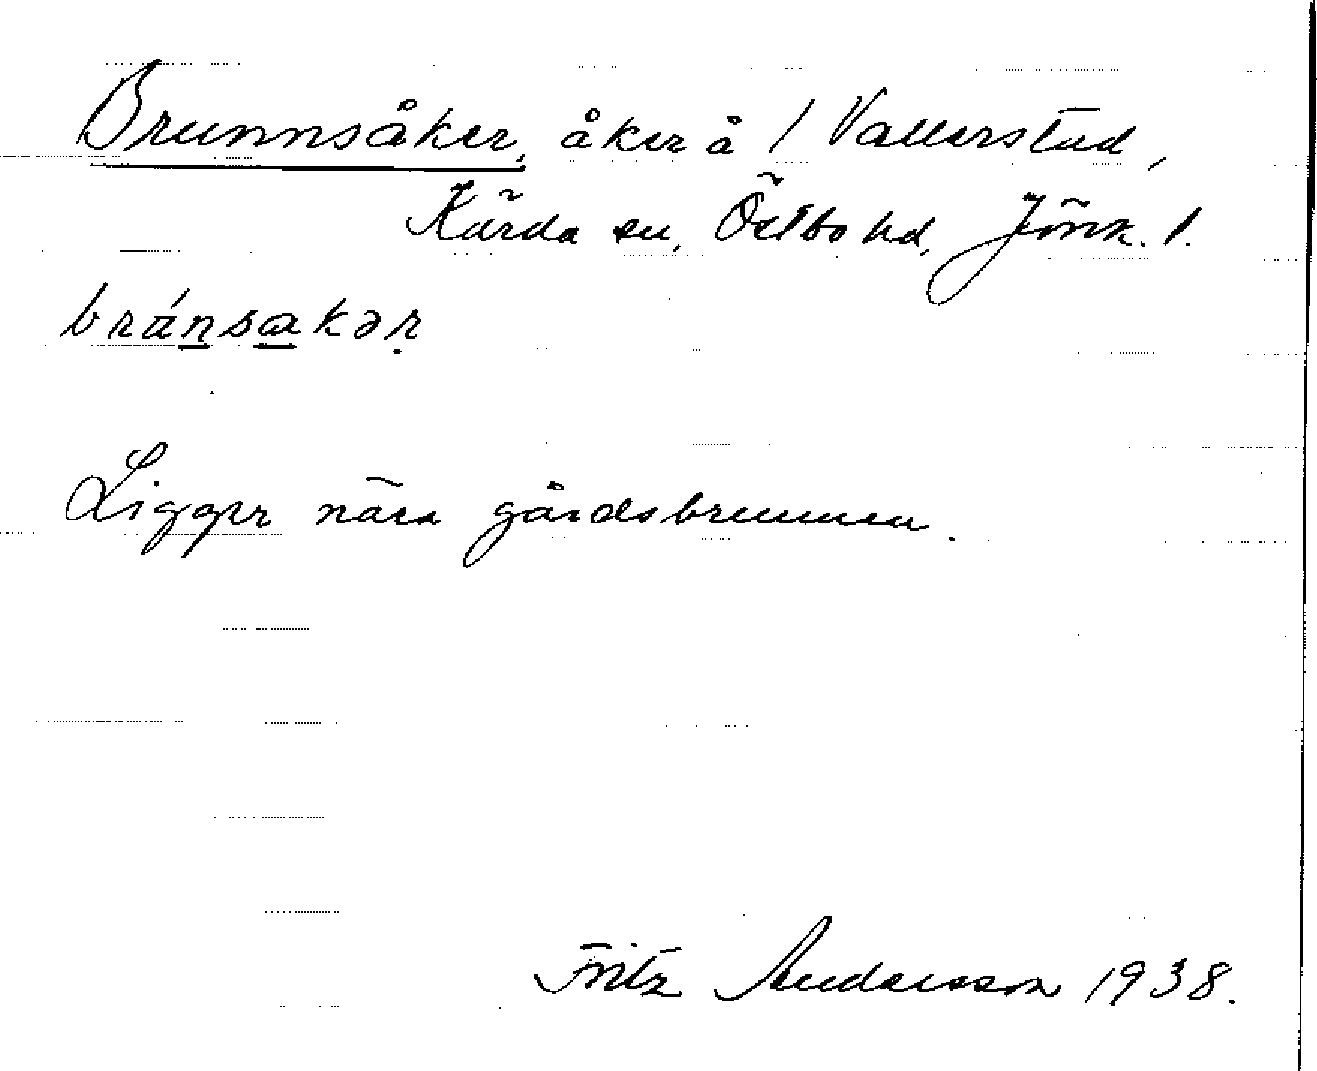 Brunnsåker, åker å 1 Vallerstad,
Kärda sn, Östbo hd, Jönk. l.
bránsakər
Ligger nära gårdsbrunnen.
Fritz Andersson 1938.